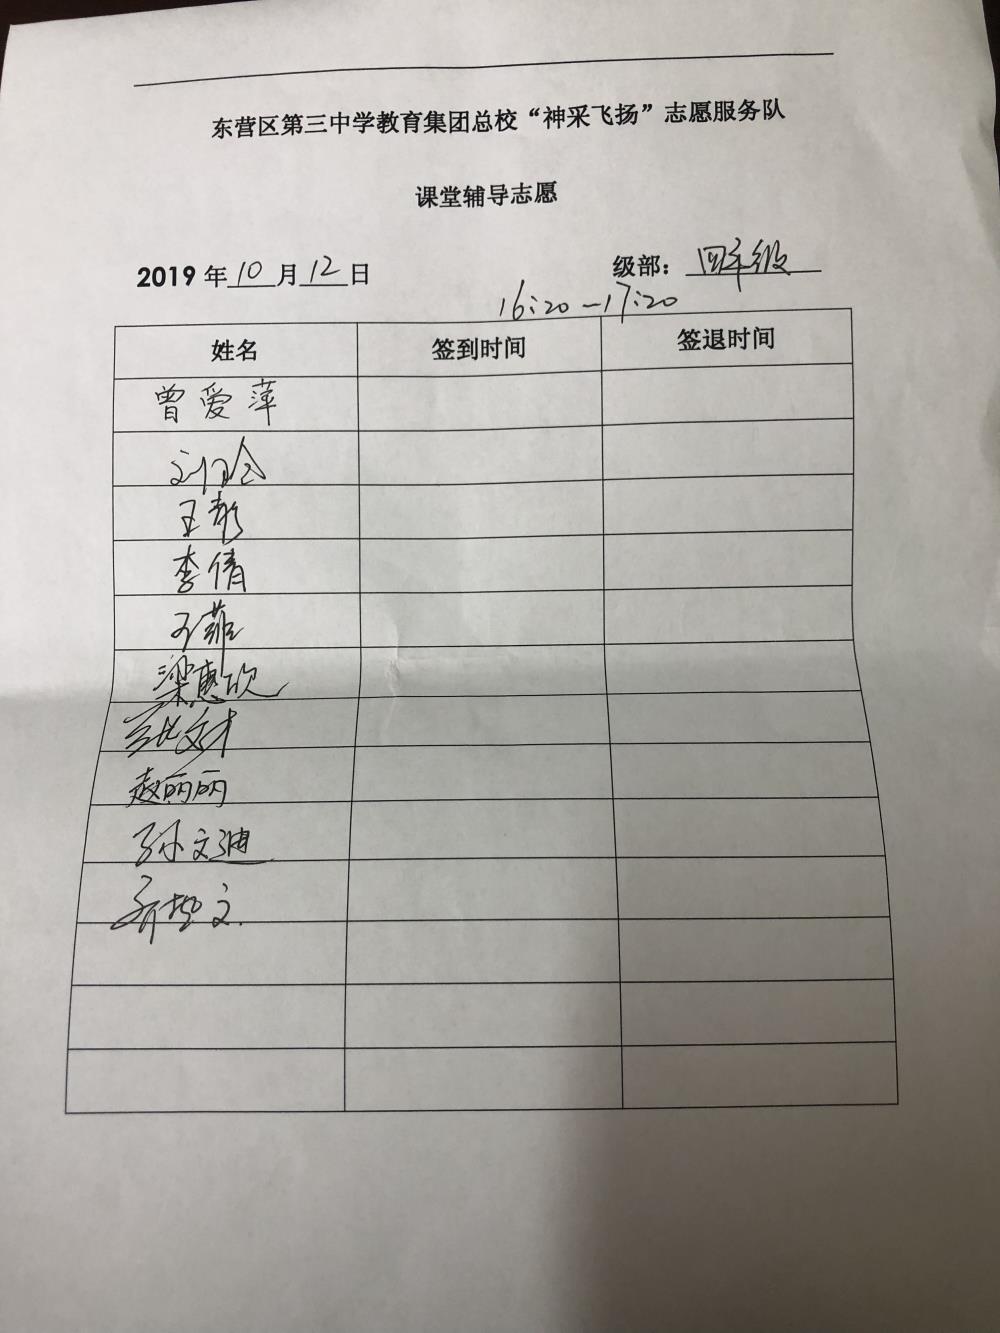 东营区第三中学教育集团总校“神采飞扬”志愿服务队
课堂辅导志愿
2019 年 10 月 12 日 级部： 四年级
16:20-17:20
姓名 签到时间 签退时间
曾爱萍
王彰
李倩
王菲
梁惠欣
赵丽丽
孙文迪